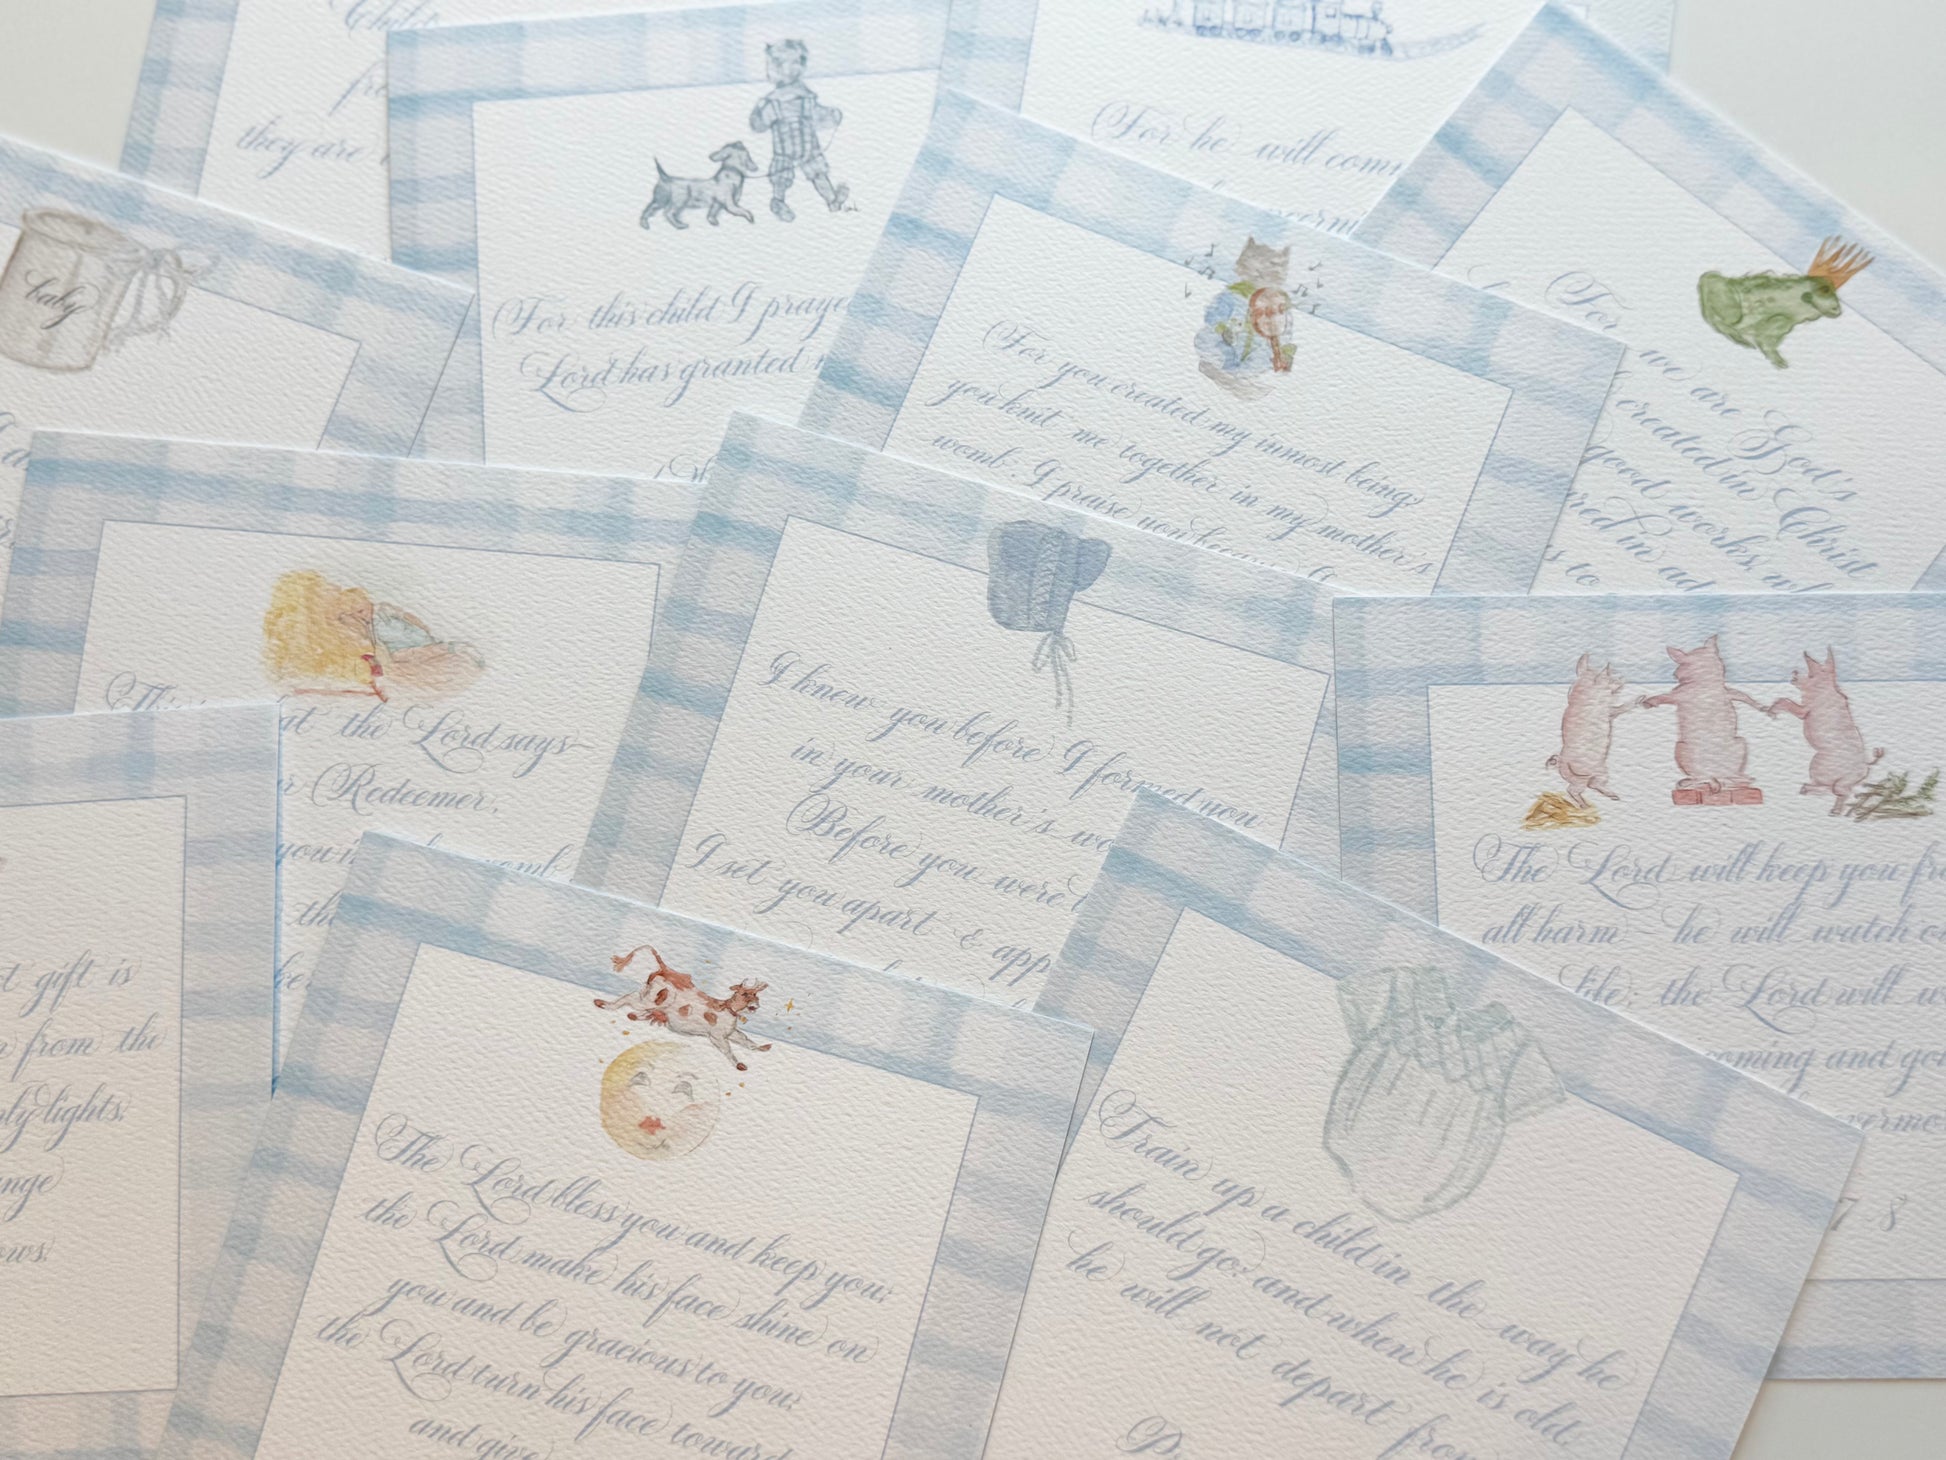 they are
For this child I
Lord has granted
For he will
baby
For you created my inmost being;
you knit me together in my mother's
womb. I praise you
For we are God's
created in Christ
good works,
in ad
to
the Lord says—
Redeemer,
you
womb
I knew you before I formed you
in your mother's
Before you were
I set you apart &
The Lord will keep you
all harm — he will watch
life; the Lord will
coming and
7-8
gift is
from the
lights,
The Lord bless you and keep you;
the Lord make his face shine on
you and be gracious to you;
the Lord turn his face toward
and give
Train up a child in the way he
should go: and when he is old,
he will not depart from